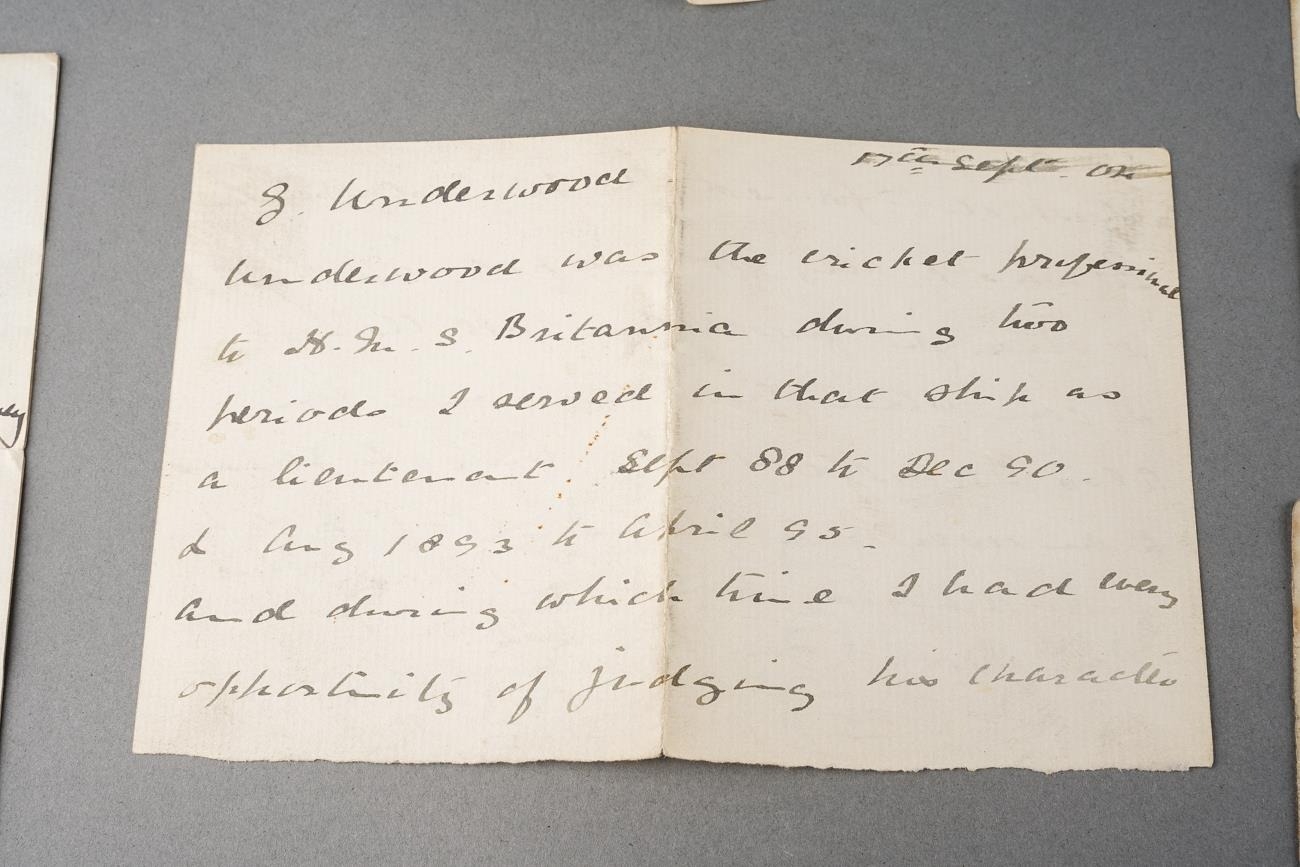 17th Sept. 04
G. Underwood
Underwood was the cricket professional
to H.M.S. Britannia during two
periods I served in that ship as
a lieutenant. Sept 88 to Dec 90.
& Aug 1893 to April 95.
and during which time I had every
opportunity of judging his character